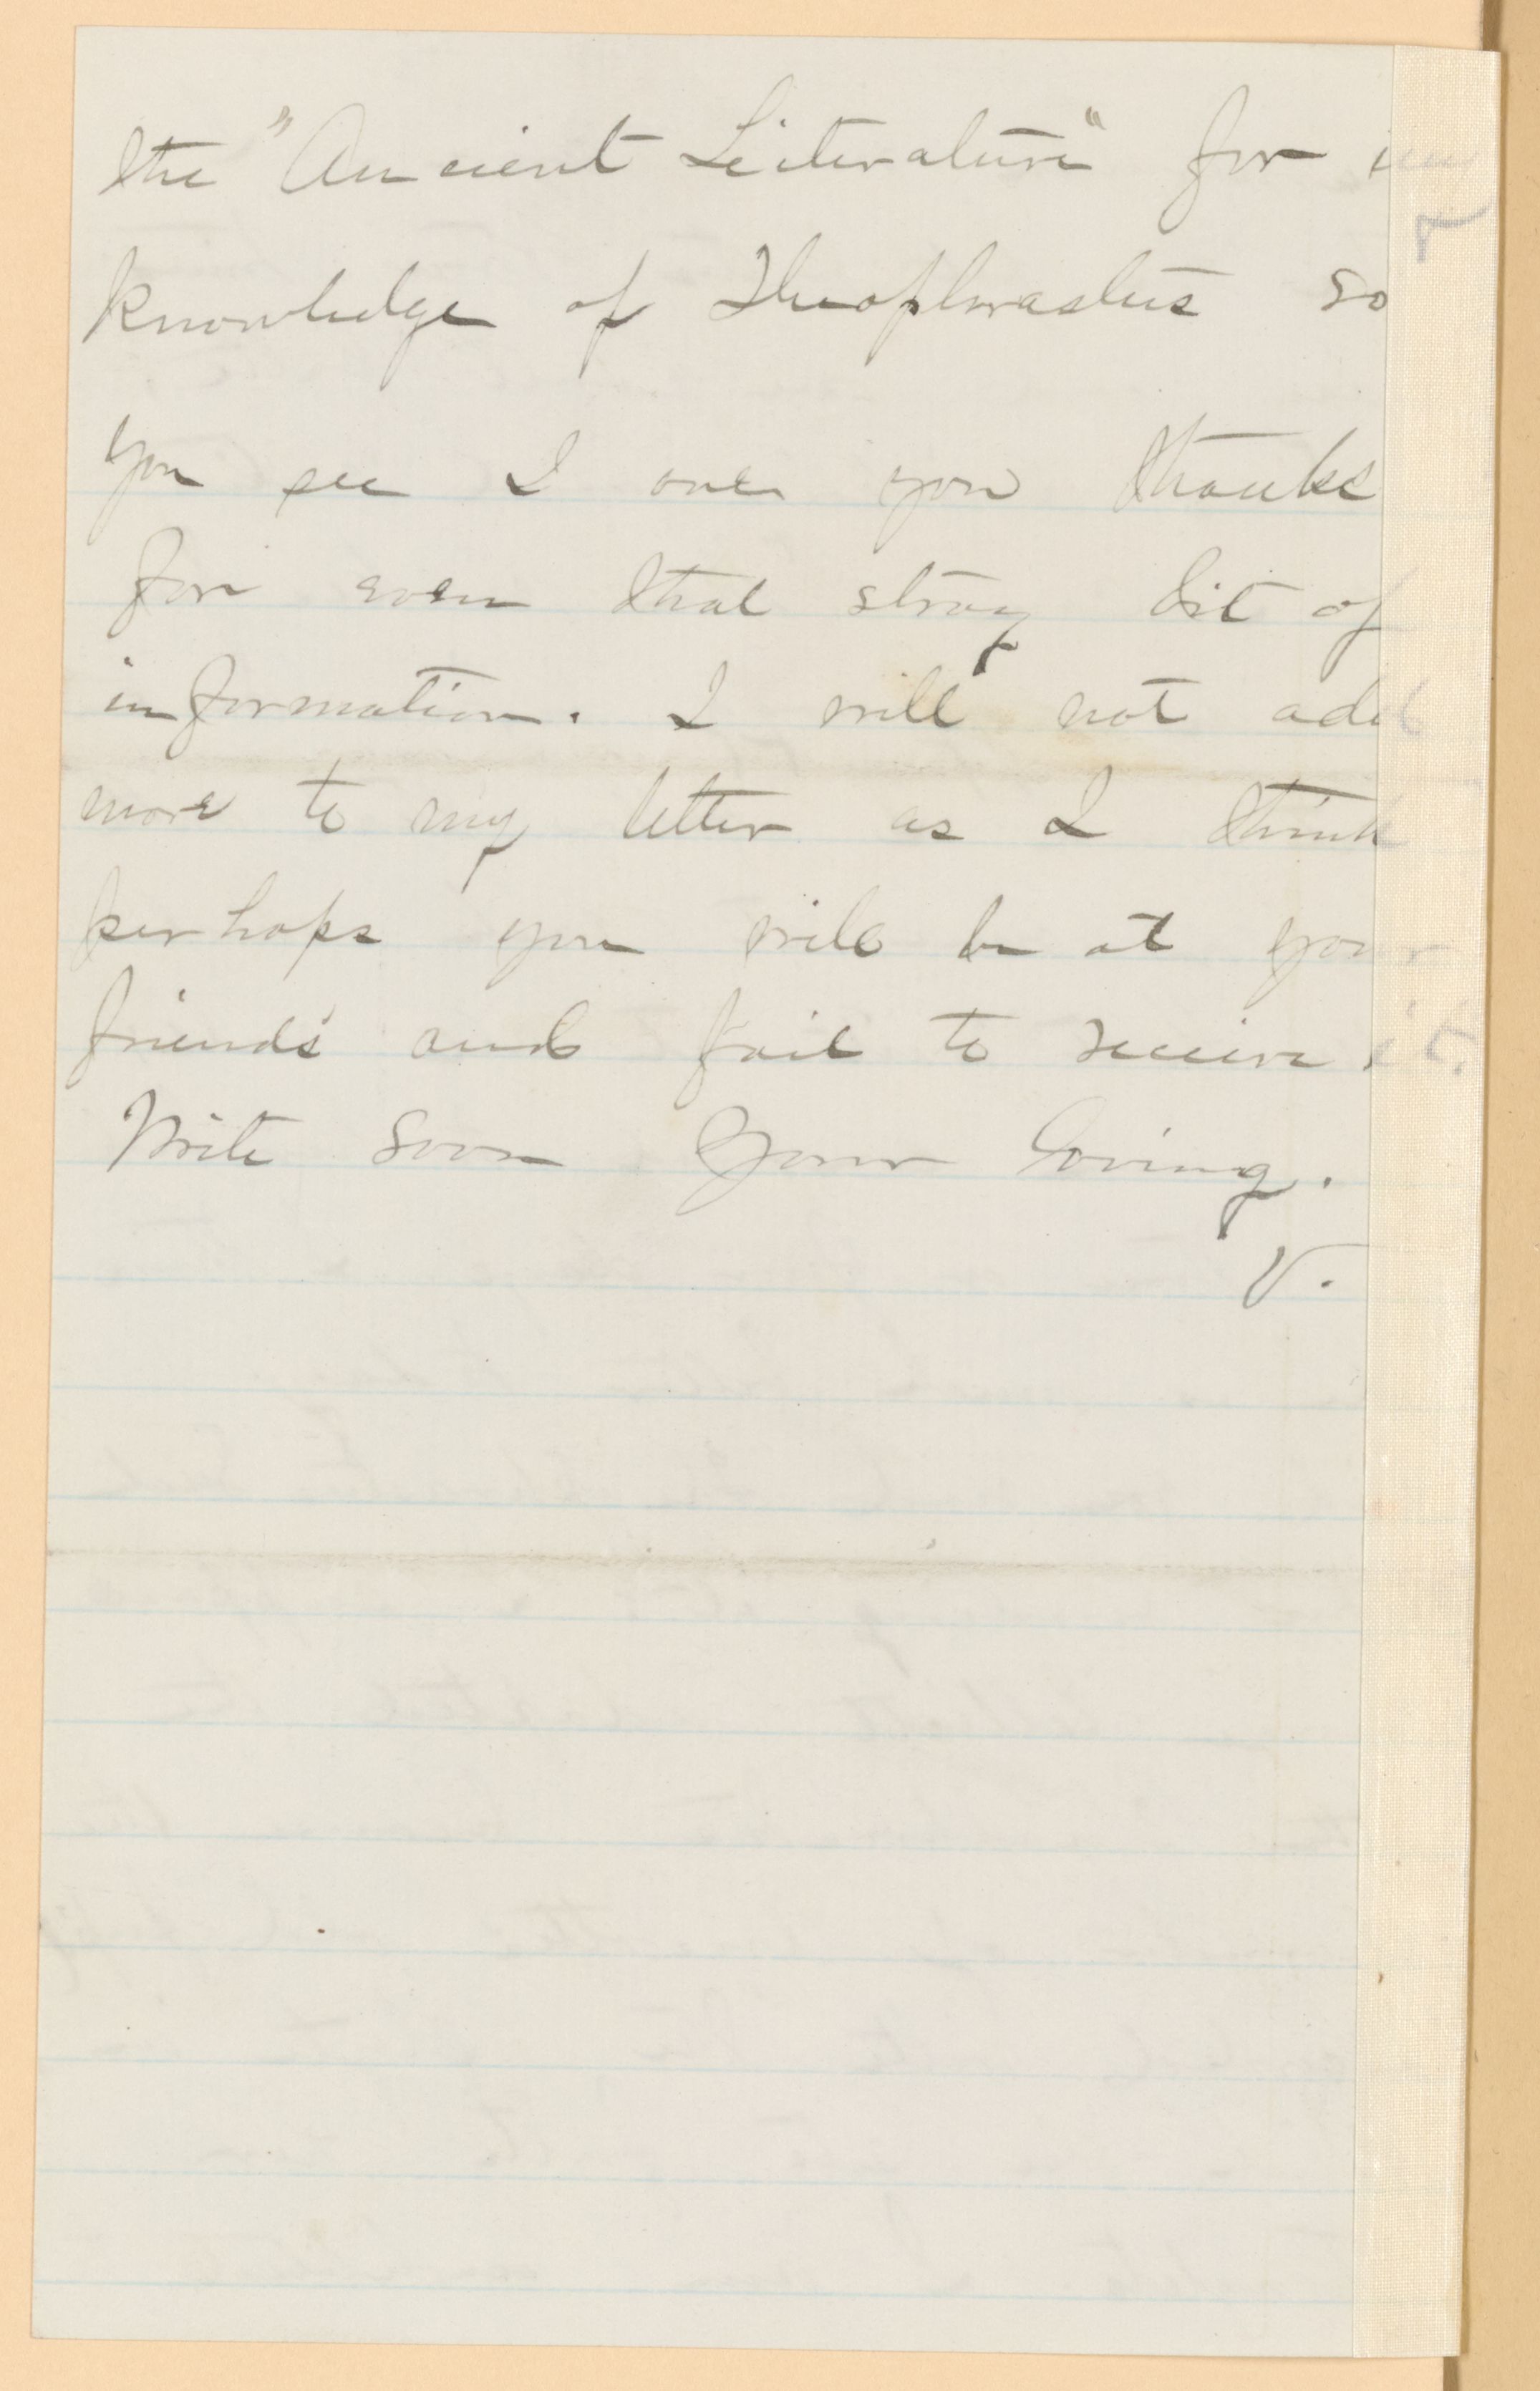 the "Ancient Literature" for my
knowledge of Theophrastus so
you see I owe you thanks
for even that stray bit of
information. I will not add
more to my letter as I think
perhaps you will be at your
friends' and fail to receive it.
Write soon Your loving.
V.